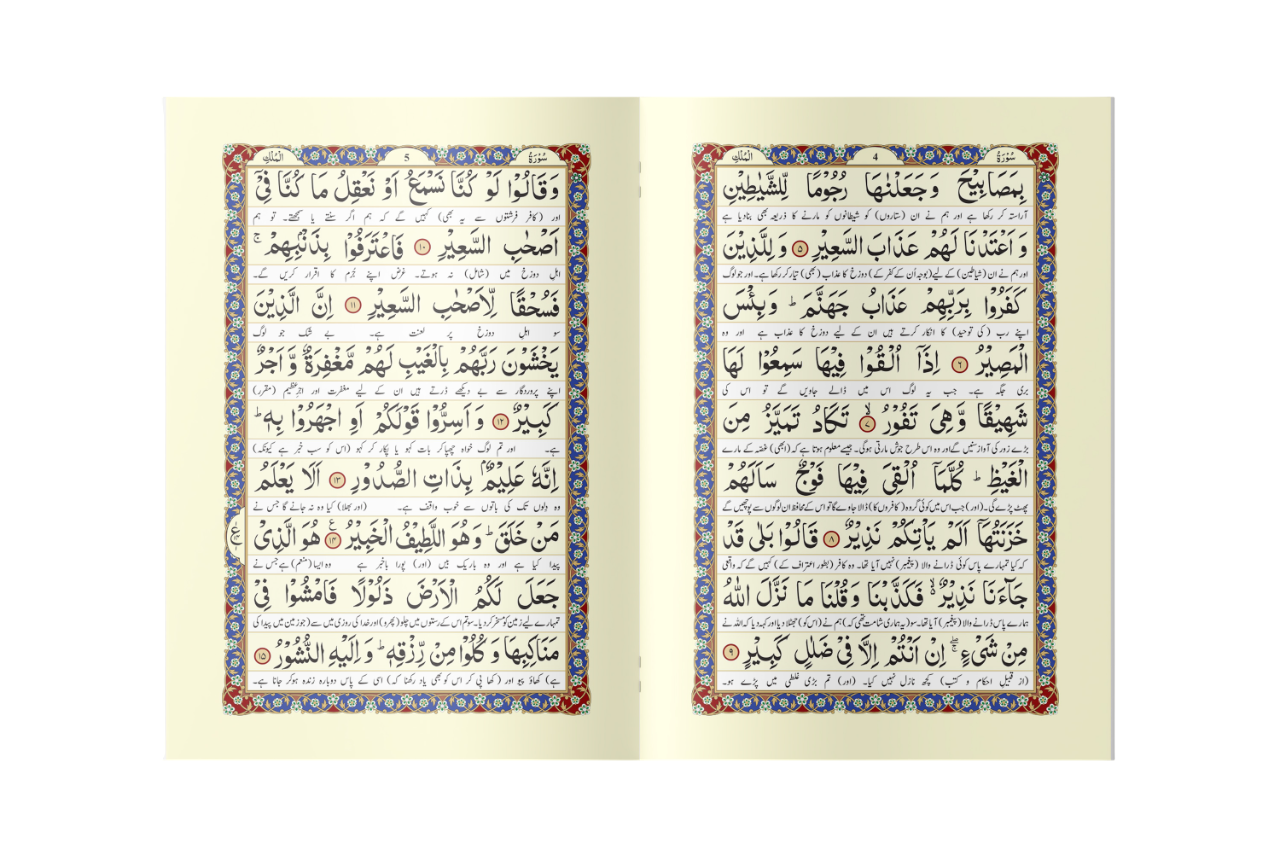 سُوْرَةُ 4 الْمُلْكِ
بِمَصَابِيْحَ وَجَعَلْنٰهَا رُجُوْمًا لِّلشَّيٰطِيْنِ
آراستہ کر رکھا ہے اور ہم نے ان (ستاروں) کو شیطانوں کو مارنے کا ذریعہ بھی بنادیا ہے
وَ اَعْتَدْنَا لَهُمْ عَذَابَ السَّعِيْرِ ۵ وَ لِلَّذِيْنَ
اور ہم نے ان (شیاطین) کے لیے (بوجہ اُن کے کفر کے) دوزخ کا عذاب (بھی) تیار کر رکھا ہے۔ اور جو لوگ
كَفَرُوْا بِرَبِّهِمْ عَذَابُ جَهَنَّمَ ؕ وَبِئْسَ
اپنے رب (کی توحید) کا انکار کرتے ہیں ان کے لیے دوزخ کا عذاب ہے اور وہ
الْمَصِيْرُ ۶ اِذَاۤ اُلْقُوْا فِيْهَا سَمِعُوْا لَهَا
بری جگہ ہے۔ جب یہ لوگ اس میں ڈالے جاویں گے تو اس کی
شَهِيْقًا وَّهِيَ تَفُوْرُ ۙ ۷ تَكَادُ تَمَيَّزُ مِنَ
بڑے زور کی آواز سنیں گے اور وہ اس طرح جوش مارتی ہوگی۔ جیسے معلوم ہوتا ہے کہ (ابھی) غصّہ کے مارے
الْغَيْظِ ؕ كُلَّمَاۤ اُلْقِيَ فِيْهَا فَوْجٌ سَاَلَهُمْ
پھٹ پڑے گی۔ (اور) جب اس میں کوئی گروہ (کافروں کا) ڈالا جاوے گا تو اس کے محافظ ان لوگوں سے پوچھیں گے
خَزَنَتُهَاۤ اَلَمْ يَاْتِكُمْ نَذِيْرٌ ۸ قَالُوْا بَلٰى قَدْ
کہ کیا تمہارے پاس کوئی ڈرانے والا (پیغمبر) نہیں آیا تھا۔ وہ کافر (بطور اعتراف کے) کہیں گے کہ واقعی
جَآءَنَا نَذِيْرٌ ۙ فَكَذَّبْنَا وَقُلْنَا مَا نَزَّلَ اللّٰهُ
ہمارے پاس ڈرانے والا (پیغمبر) آیا تھا۔ سو (یہ ہماری شامت تھی کہ) ہم نے (اس کو) جھٹلا دیا اور کہہ دیا کہ اللہ نے
مِنْ شَيْءٍ ۖۚ اِنْ اَنْتُمْ اِلَّا فِيْ ضَلٰلٍ كَبِيْرٍ ۹
(از قبیل احکام و کتب) کچھ نازل نہیں کیا۔ (اور) تم بڑی غلطی میں پڑے ہو۔
سُوْرَةُ 5 الْمُلْكِ
وَقَالُوْا لَوْ كُنَّا نَسْمَعُ اَوْ نَعْقِلُ مَا كُنَّا فِيْۤ
اور (کافر فرشتوں سے یہ بھی) کہیں گے کہ ہم اگر سنتے یا سمجھتے۔ تو ہم
اَصْحٰبِ السَّعِيْرِ ۱۰ فَاعْتَرَفُوْا بِذَنْۢبِهِمْ ۚ
اہلِ دوزخ میں (شامل) نہ ہوتے۔ غرض اپنے جُرم کا اقرار کریں گے۔
فَسُحْقًا لِّاَصْحٰبِ السَّعِيْرِ ۱۱ اِنَّ الَّذِيْنَ
سو اہلِ دوزخ پر لعنت ہے۔ بے شک جو لوگ
يَخْشَوْنَ رَبَّهُمْ بِالْغَيْبِ لَهُمْ مَّغْفِرَةٌ وَّاَجْرٌ
اپنے پروردگار سے بے دیکھے ڈرتے ہیں ان کے لیے مغفرت اور اجرِ عظیم (مقرر)
كَبِيْرٌ ۱۲ وَ اَسِرُّوْا قَوْلَكُمْ اَوِ اجْهَرُوْا بِهٖ ؕ
ہے۔ اور تم لوگ خواہ چھپا کر بات کہو یا پکار کر کہو (اس کو سب خبر ہے کیونکہ)
اِنَّهٗ عَلِيْمٌۢ بِذَاتِ الصُّدُوْرِ ۱۳ اَلَا يَعْلَمُ
وہ دِلوں تک کی باتوں سے خوب واقف ہے۔ (اور بھلا) کیا وہ نہ جانے گا جس نے
مَنْ خَلَقَ ؕ وَهُوَ اللَّطِيْفُ الْخَبِيْرُ ۱۴ ع هُوَ الَّذِيْ
پیدا کیا ہے اور وہ باریک بیں (اور) پورا باخبر ہے وہ ایسا (منعم) ہے جس نے
جَعَلَ لَكُمُ الْاَرْضَ ذَلُوْلًا فَامْشُوْا فِيْ
تمہارے لیے زمین کو مسخر کر دیا۔ سو تم اس کے رستوں میں چلو (پھرو) اور خدا کی روزی میں سے (جو زمین میں پیدا کی
مَنَاكِبِهَا وَ كُلُوْا مِنْ رِّزْقِهٖ ؕ وَ اِلَيْهِ النُّشُوْرُ ۱۵
ہے) کھاؤ پیو اور (کھا پی کر اس کو بھی یاد رکھنا کہ) اسی کے پاس دوبارہ زندہ ہو کر جانا ہے۔